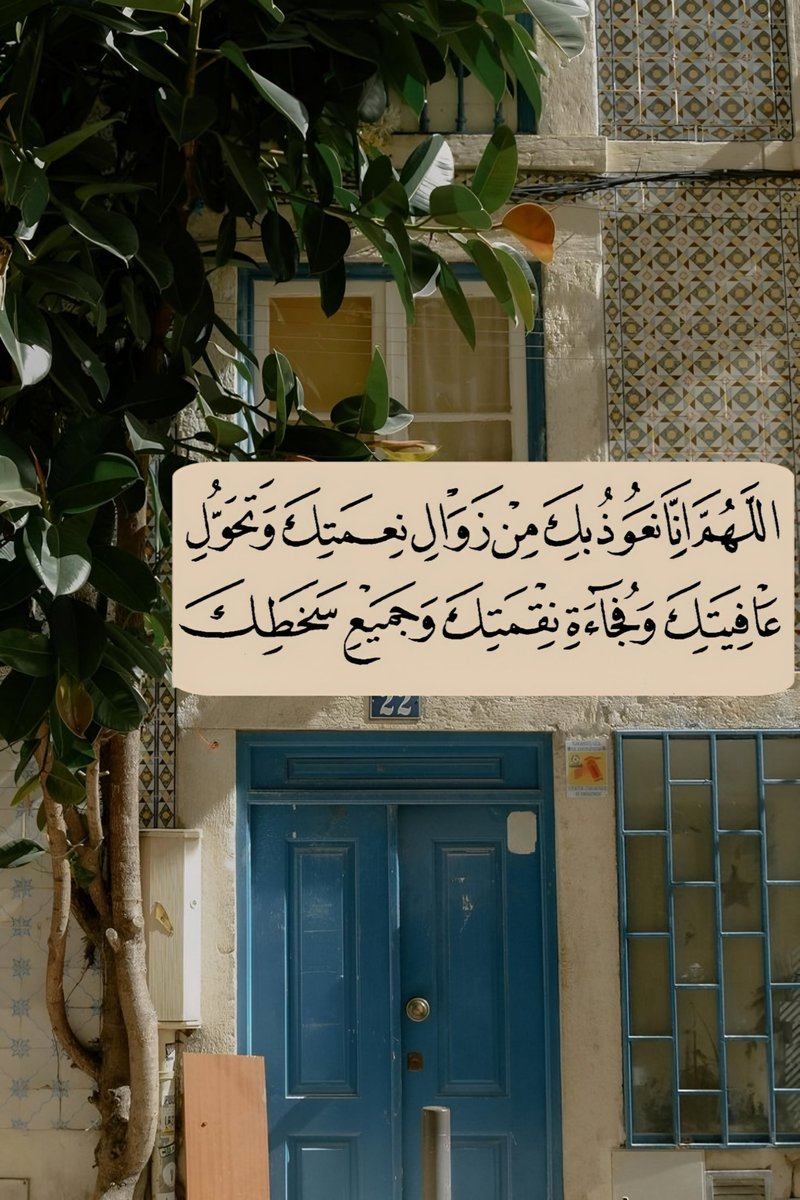 اللَّهُمَّ إِنَّا نَعُوذُ بِكَ مِنْ زَوَالِ نِعْمَتِكَ وَتَحَوُّلِ
عَافِيَتِكَ وَفُجَآءَةِ نِقْمَتِكَ وَجَمِيْعِ سَخَطِكَ
22